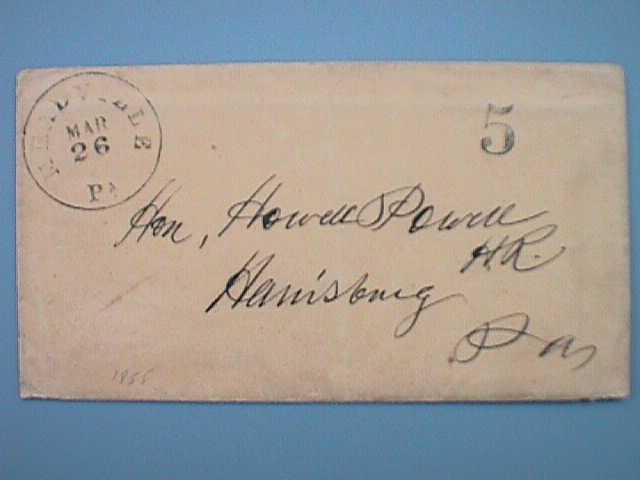 MEADVILLE
MAR
26
PA
5
Hon, Howell Powell
H.R.
Harrisburg
Pa,
1855